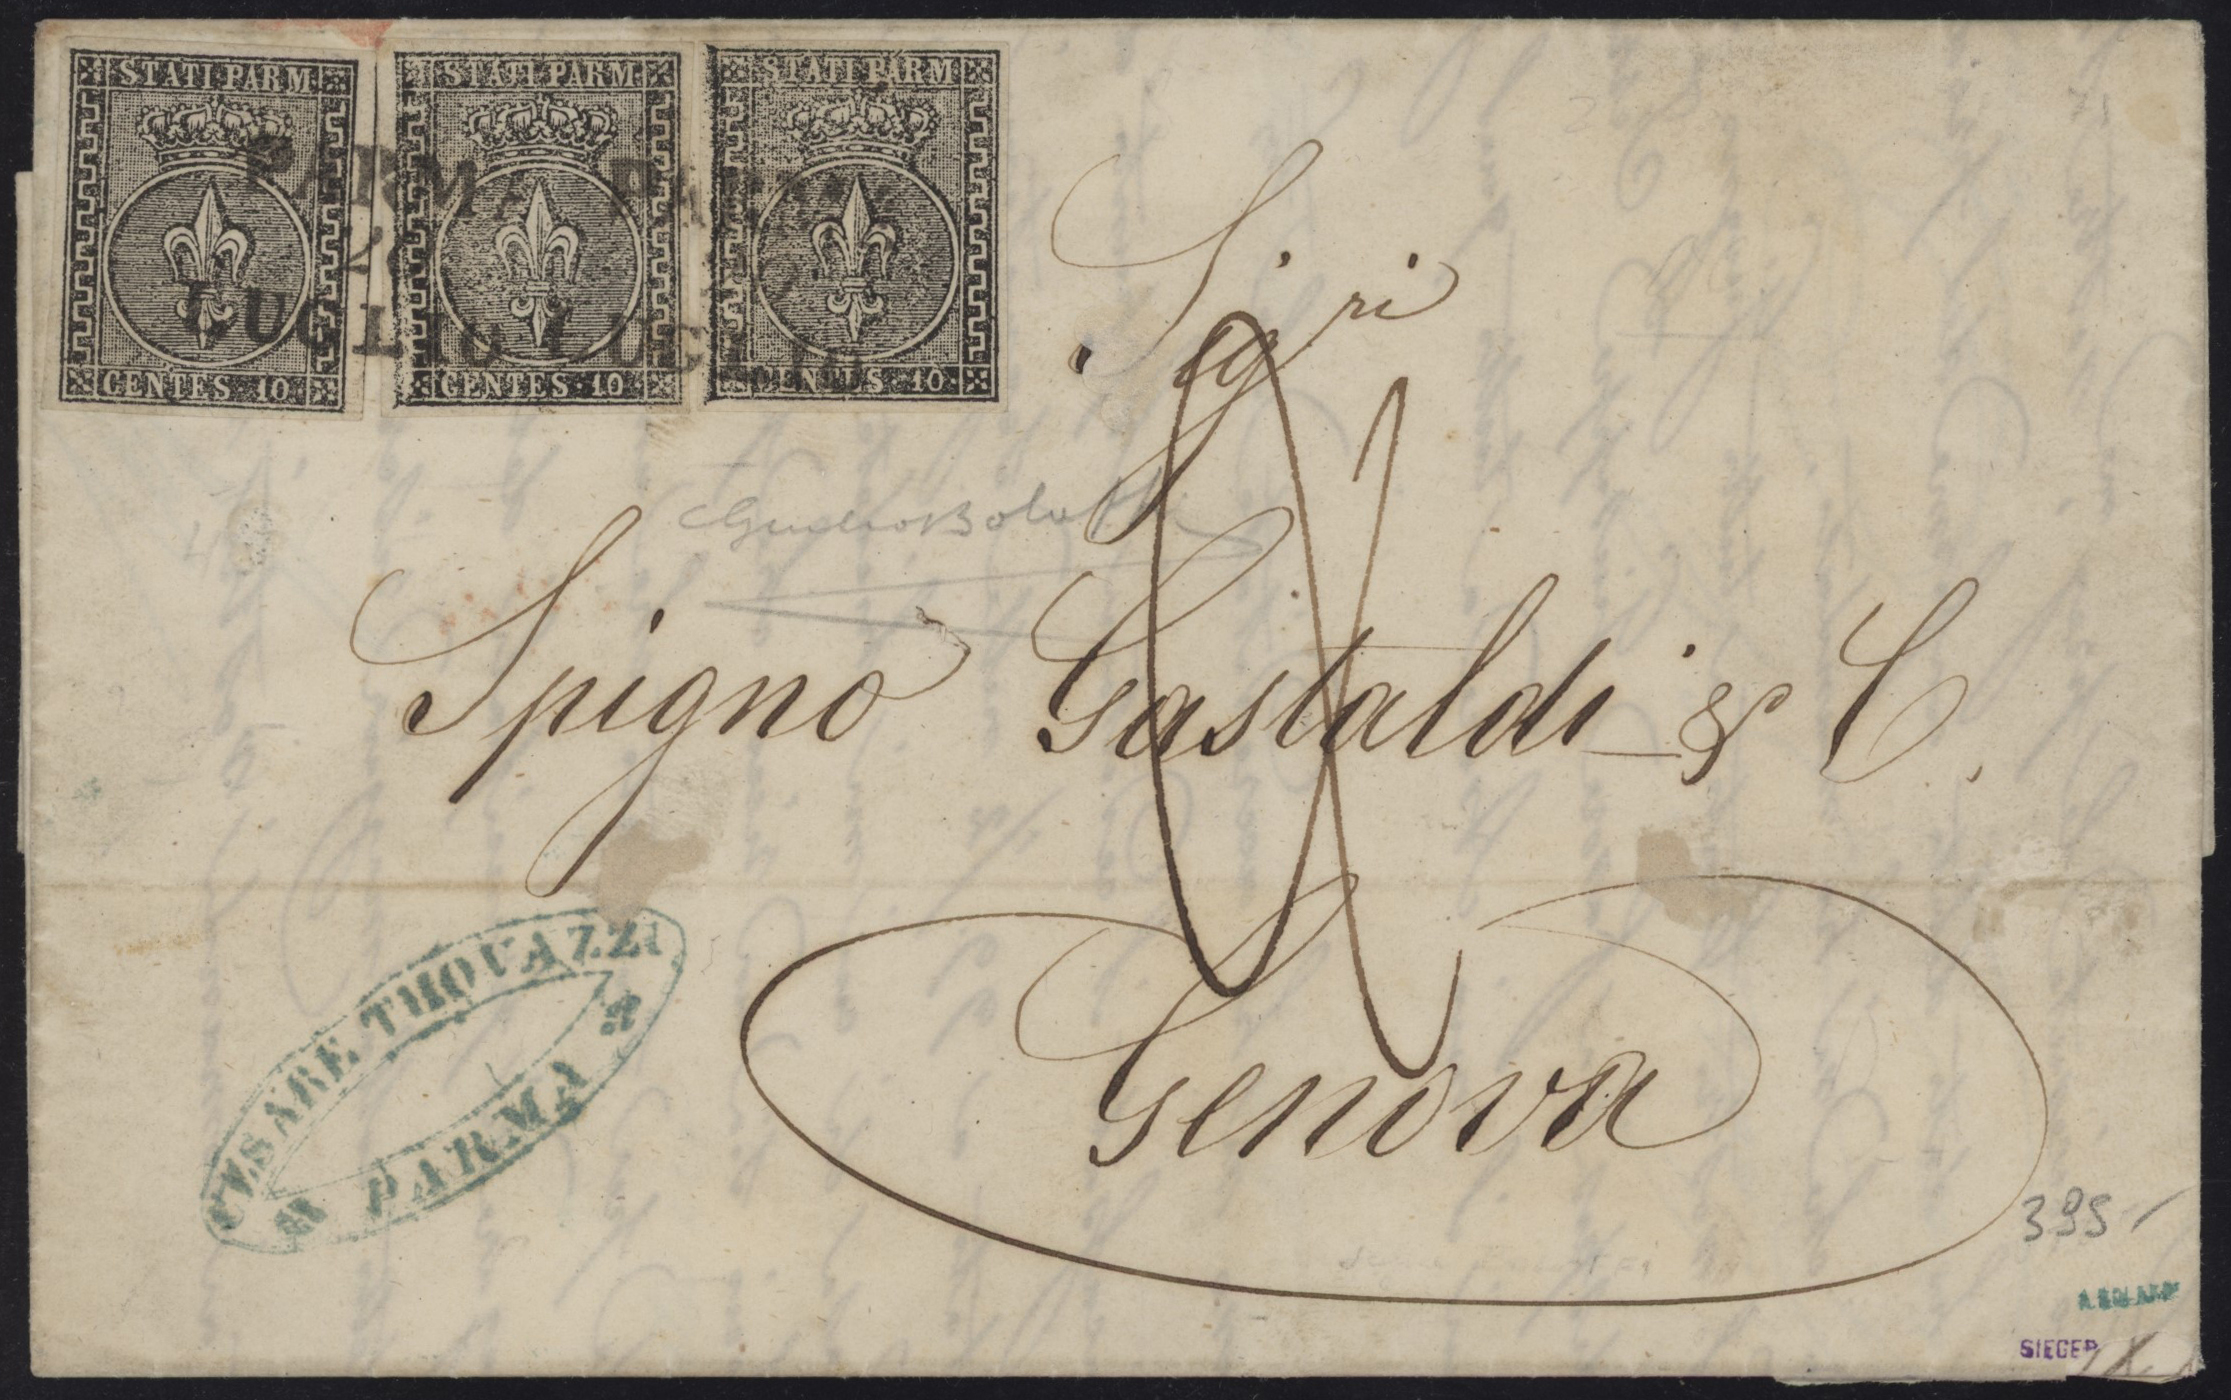 STATI PARM STATI PARM STATI PARM
PARMA PARMA
LUGLIO LUGLIO
CENTES 10 CENTES 10 CENTES 10
Sig.ri
Spigno Gastaldi & C.
CESARE THOVAZZI
PARMA
Genova
395 -
SIEGER